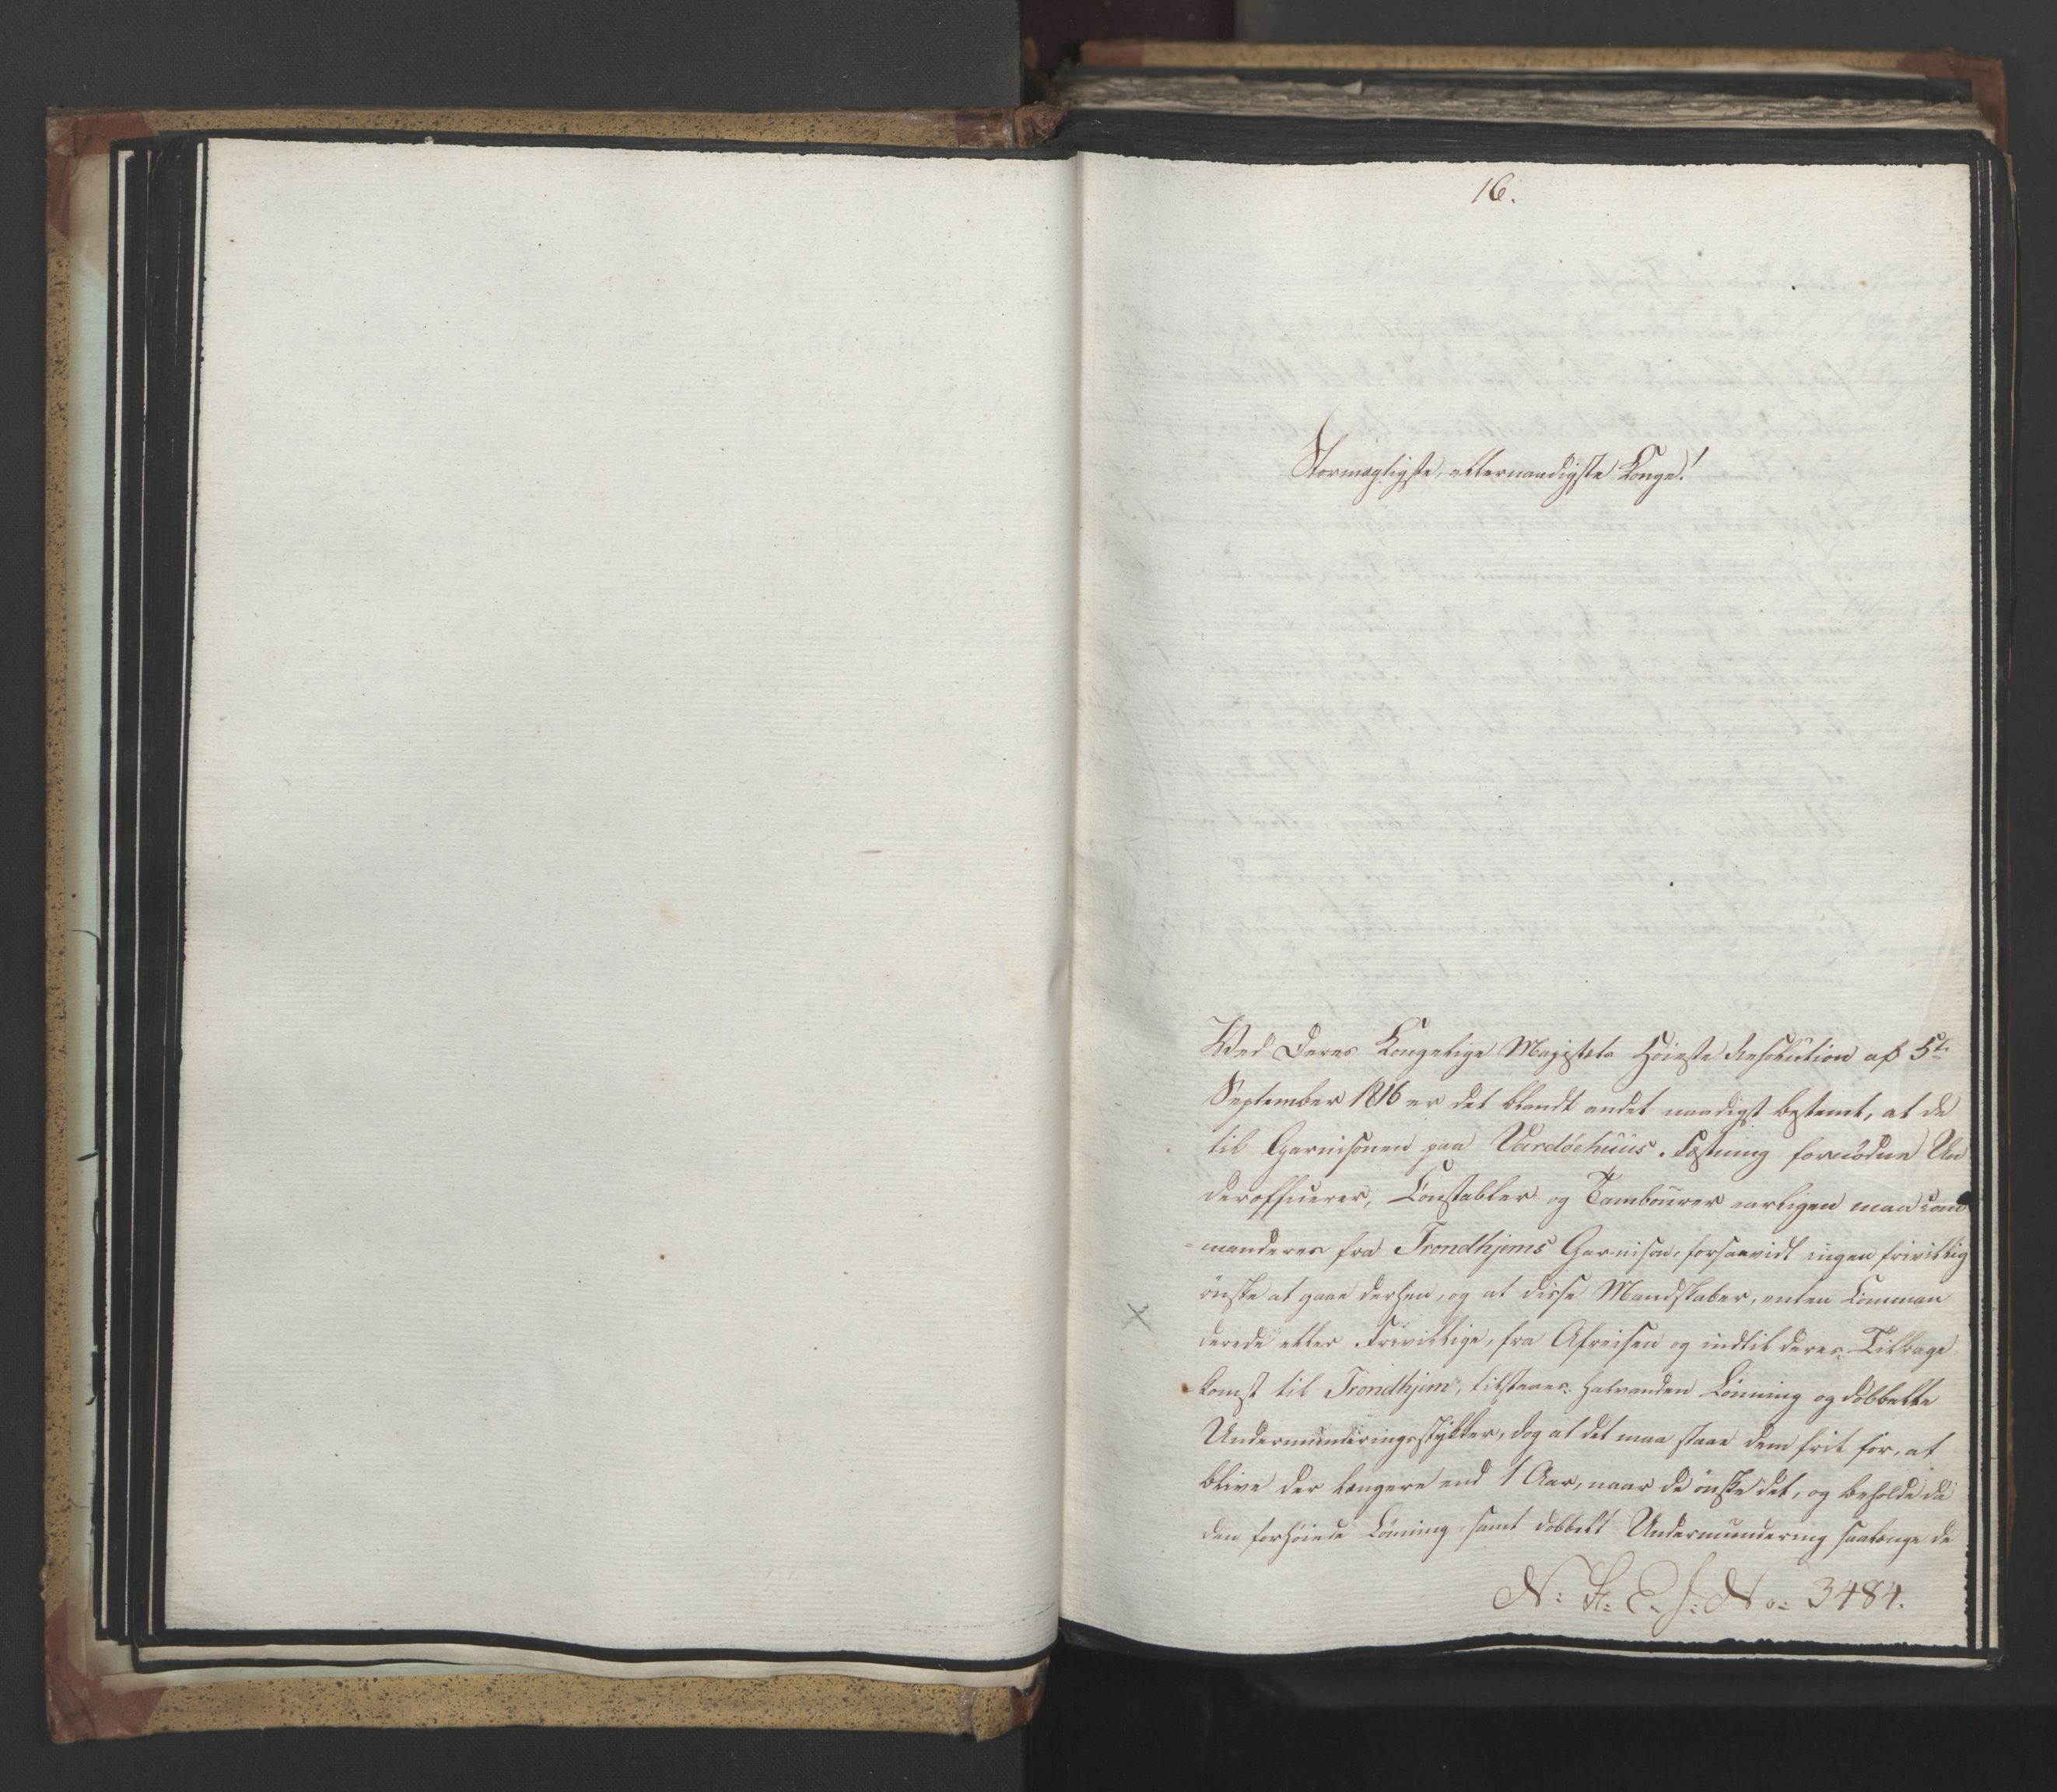 16.
Stormægtigste, allernaadigste Konge!
Ved Deres Kongelige Majestæts Høieste Resolution af 5te
September 1816 er det blandt andet naadigst bestemt, at de
til Garnisonen paa Vardøehuus Fæstning fornødne Un
derofficerer, Constabler og Tambourer aarligen maa com
=manderes fra Trondhjems Garnison, forsaavidt ingen frivillig
ønske at gaae derhen, og at disse Mandskaber, enten Comman
derede eller Frivillige, fra Afreisen og indtil deres Tilbage
komst til Trondhjem, tilstaaes halvanden Lønning og dobbelte
Undermunderingsstykker, dog at det maa staae dem frit for, at
blive der længere end 1 Aar, naar de ønske det, og beholde da
den forhøiede Lønning, samt dobbelt Undermundering saalænge de
No: 3484.